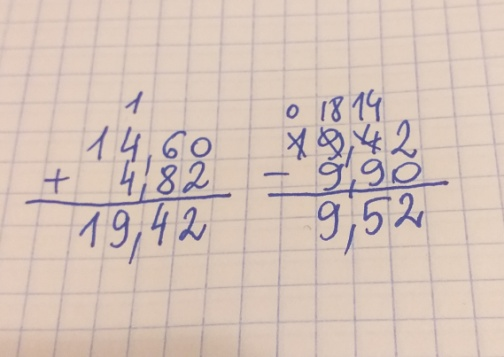 1
14,60
+ 4,82
19,42
0 18 14
19,42
- 9,90
9,52